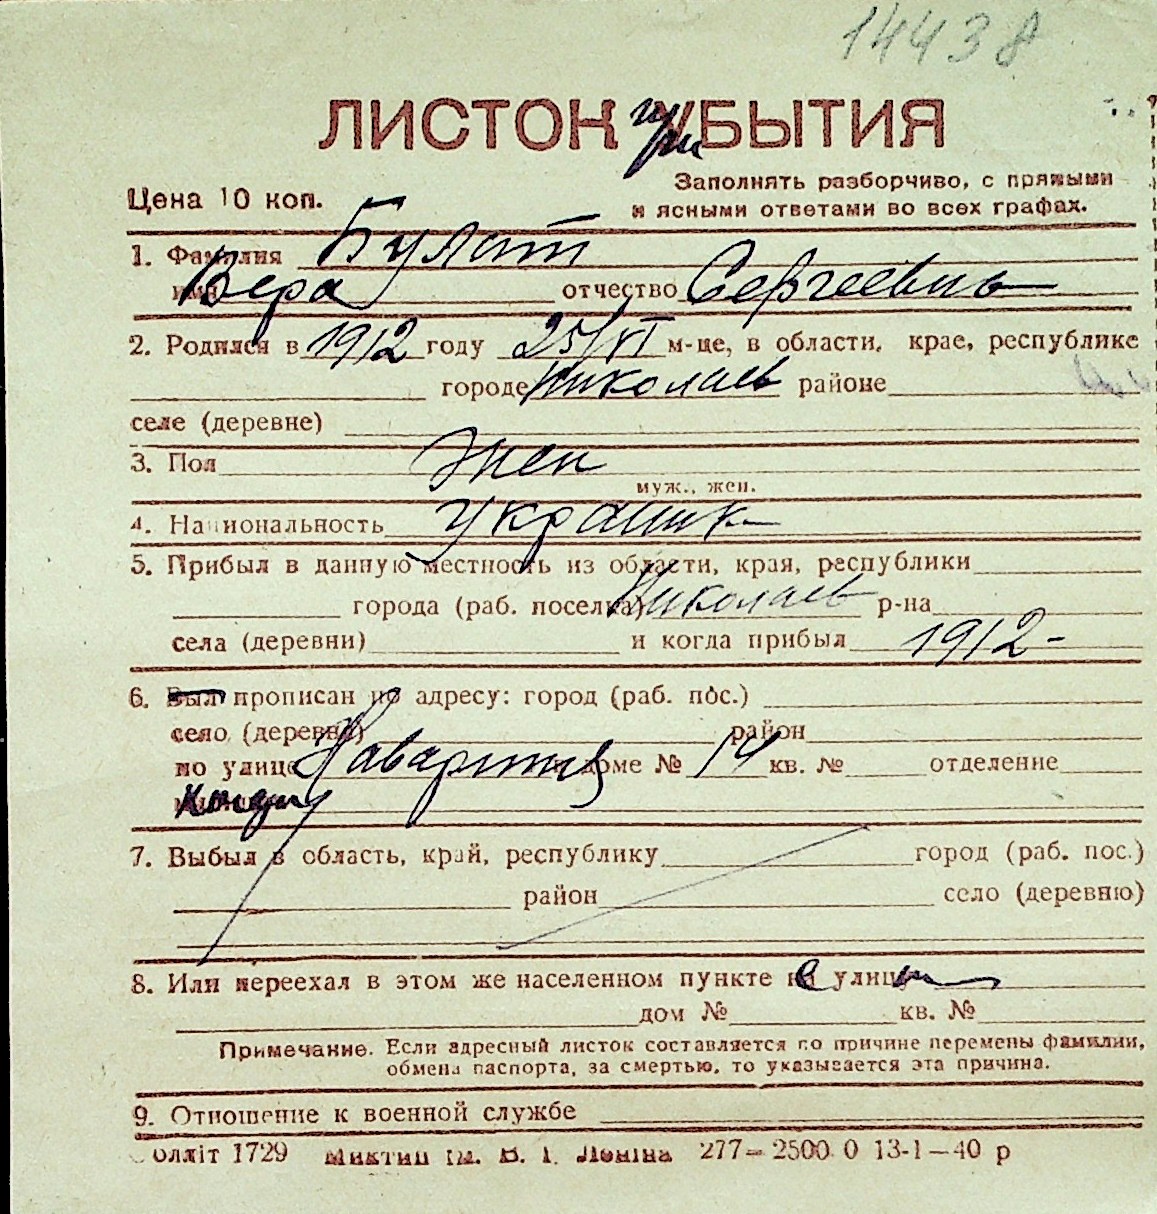 14438
ЛИСТОК при УБЫТИЯ
Цена 10 коп.
Заполнять разборчиво, с прямыми
и ясными ответами во всех графах.
1. Фамилия Булат
имя Вера отчество Сергеевна
2. Родился в 1912 году 25/VI м-це, в области, крае, республике
городе Николаев районе
селе (деревне)
3. Пол Жен
муж., жен.
4. Национальность Украинк
5. Прибыл в данную местность из области, края, республики
города (раб. поселка) Николаев р-на
села (деревни) и когда прибыл 1912-
6. Был прописан по адресу: город (раб. пос.)
село (деревня) район
по улице и доме № 14 кв. № отделение
7. Выбыл в область, край, республику город (раб. пос.)
район село (деревню)
8. Или переехал в этом же населенном пункте с улицы
дом № кв. №
Примечание. Если адресный листок составляется по причине перемены фамилии,
обмена паспорта, за смертью, то указывается эта причина.
9. Отношение к военной службе
олліт 1729 ім. В. І. Леніна 277—2500 0 13-1—40 р